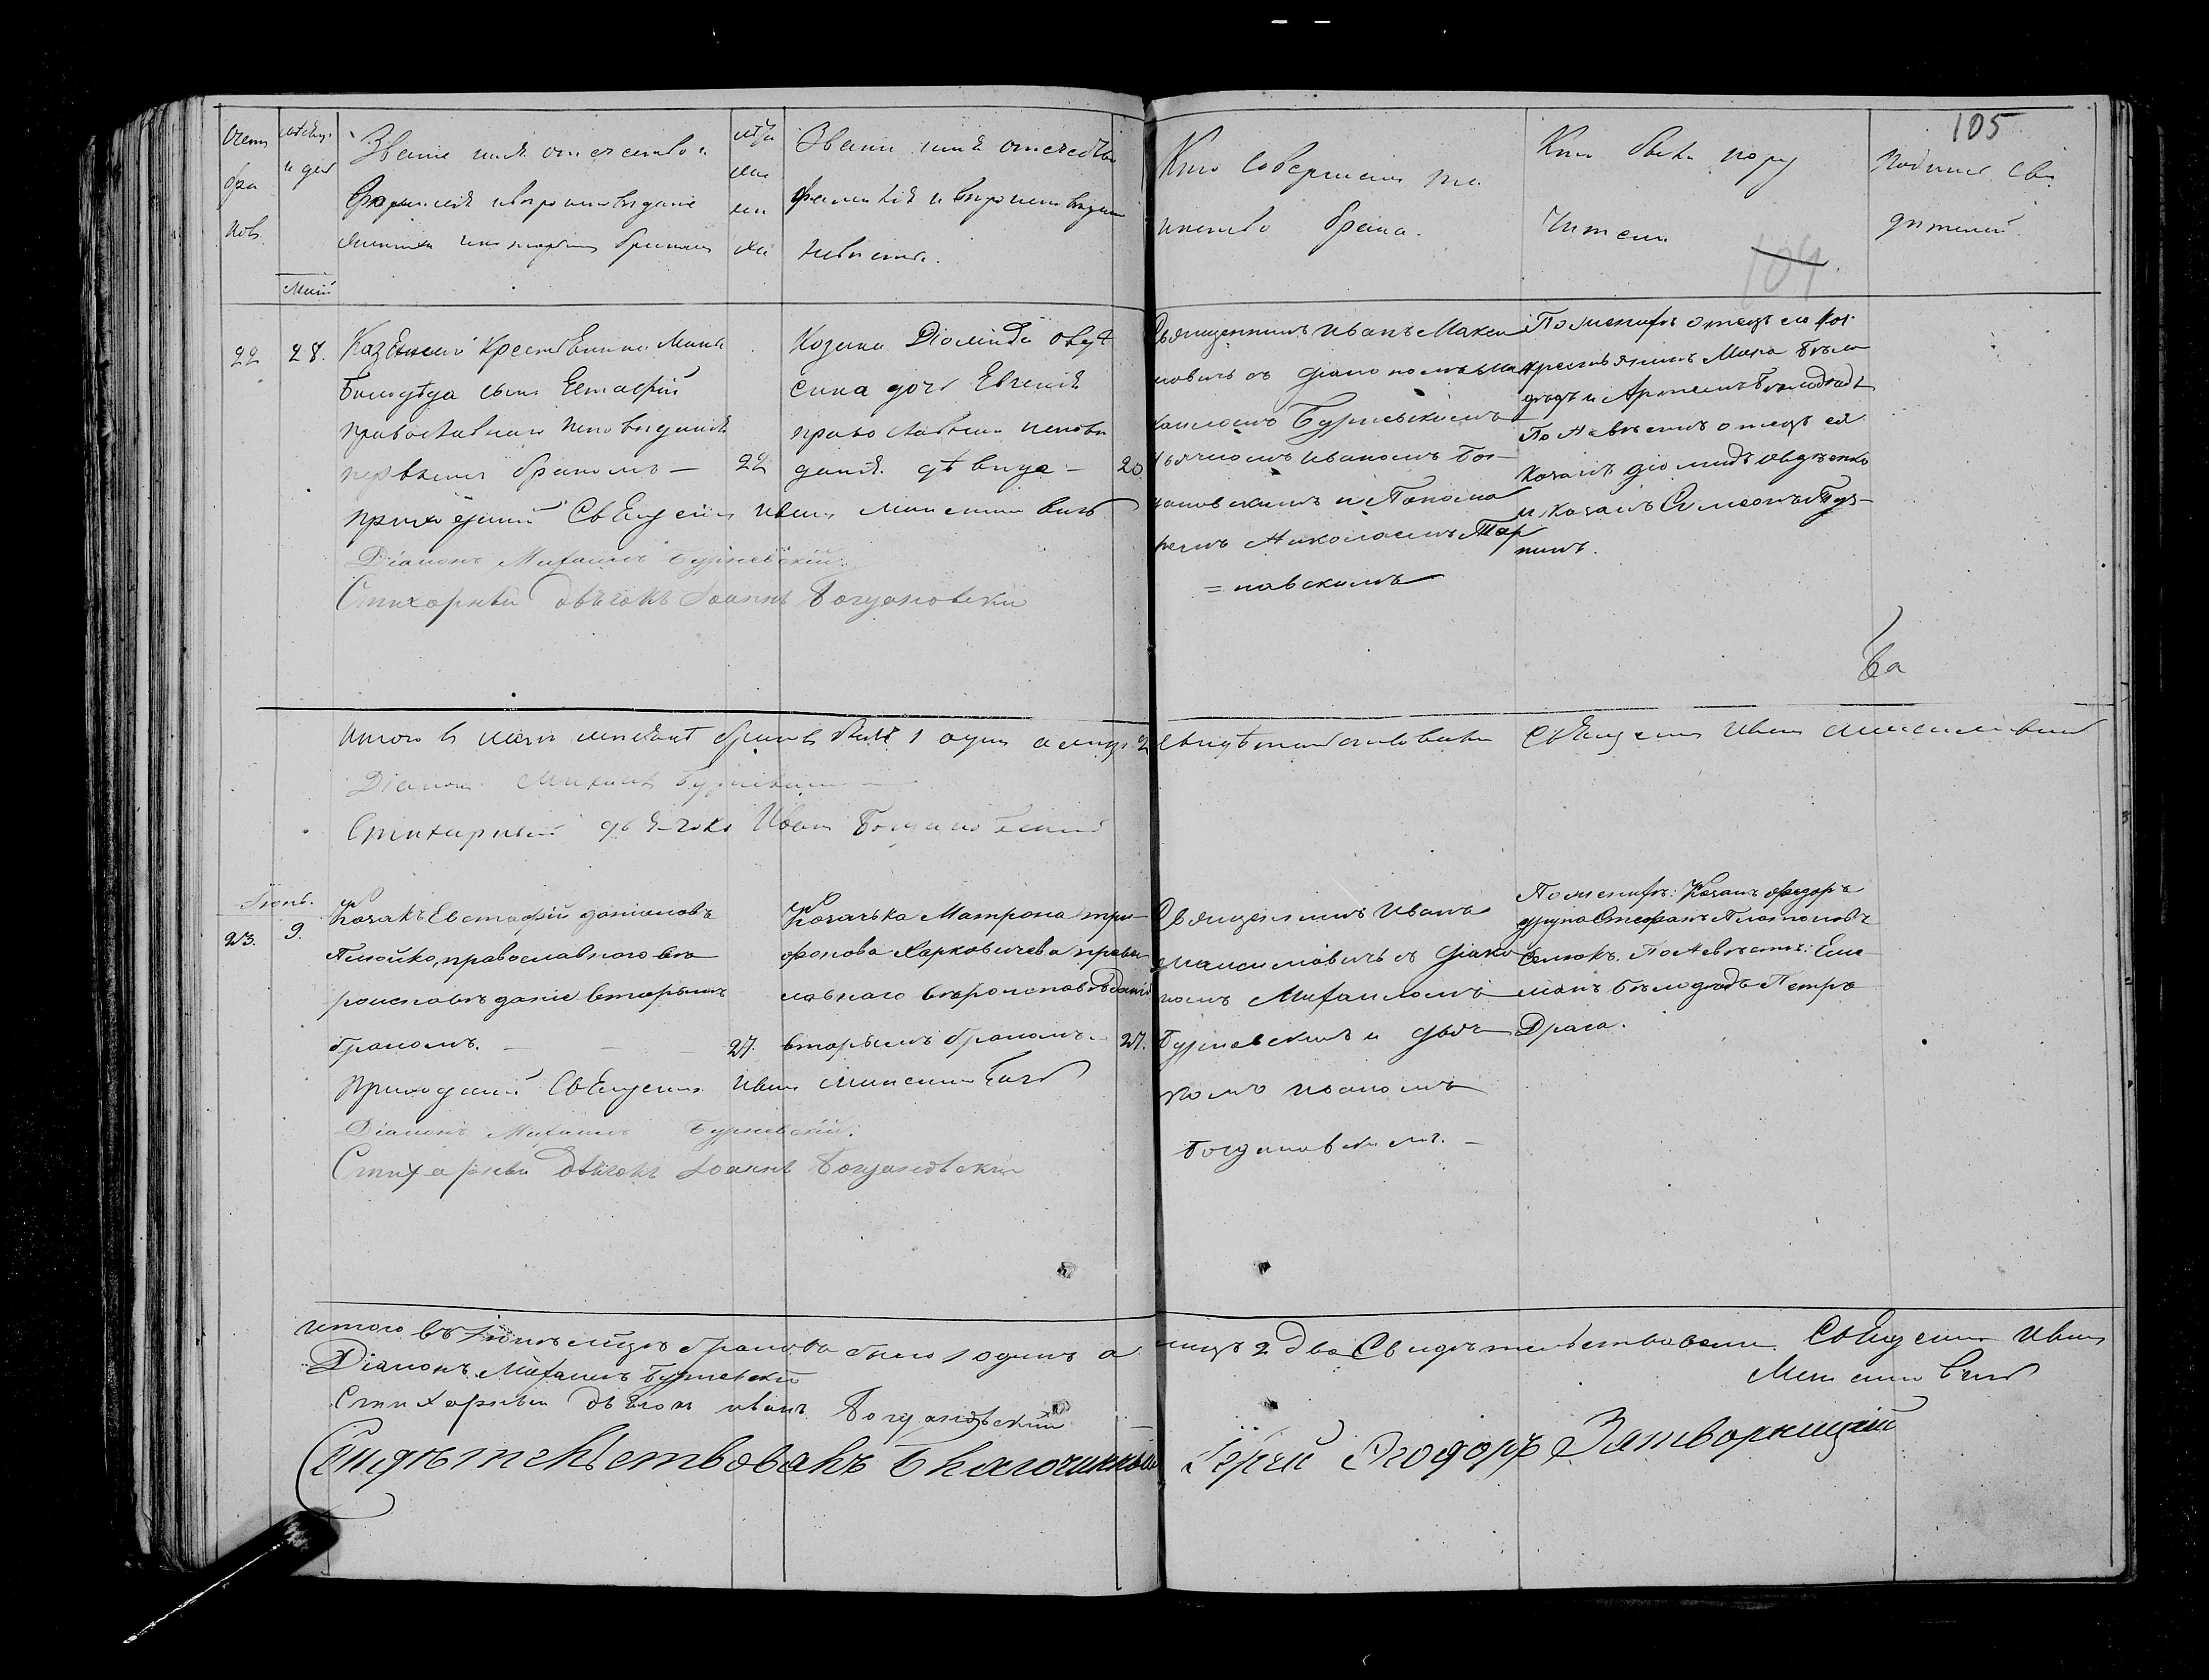 105
Счетъ браковъ
мѣсяцъ и день
Званіе имя отечество и
фамилія и вѣроисповѣданіе
жениха и которымъ бракомъ
лѣта жениха
Званіе имя отечество
фамилія и вѣроисповѣданіе
невѣсты.
Кто совершалъ та
инство брака.
Кто были пору
чители
104
Подпись сви
дѣтелей.
Май
22
28.
Казенный крестьянинъ Мина
Билодѣда сынъ Евстафій
православнаго исповѣданія
первымъ бракомъ —
22
Козака Діомида Овдѣ
енка дочь Евгенія
православнаго исповѣ
данія дѣвица —
20.
Священникъ Иванъ Макси
мовичь съ Діакономъ Ми
хаиломъ Бурневскимъ
дьячкомъ Иваномъ Бог
дановскимъ и Пономо
ремъ Николаемъ Тар
= новскимъ
По женихѣ отецъ его каз.
крестьянинъ Мина Бѣло
дѣдъ и Артемъ Бѣлодѣдъ
По невѣстѣ отецъ ея
Козакъ Діомидъ Овдѣенко
и Козакъ Симеонъ
Приходскій Священникъ Иванъ Максимовичь
Діаконъ Михаилъ Бурневскій.
Стихарный дьячокъ Іоаннъ Богдановскій
Итого въ маѣ мѣсяцѣ браковъ было 1 одинъ а лицъ 2 свидѣтельствовали Священникъ Иванъ Максимовичь
Діаконъ Михаилъ Бурневскій
Стихарный дьячокъ Иванъ Богдановскій
Іюнь.
23.
9.
Козакъ Евстафій
православного вѣ
роисповѣданіе вторымъ
бракомъ. —
27.
Козачька Матрона Три
фонова Харковичева право
славного вѣроисповѣданія
вторымъ бракомъ. —
27.
Священникъ Иванъ
Максимовичь съ Діако
номъ Михаиломъ
Бурневскимъ и дьяч
комъ Иваномъ
Богдановскимъ. —
По женихѣ: Козакъ Федоръ
По невѣстѣ:
Бѣлодѣдъ Петръ
Драга.
Приходскій Священникъ Иванъ Максимовичь
Діаконъ Михаилъ Бурневскій.
Стихарный дьячокъ Іоаннъ Богдановскій
Итого въ Іюнѣ мѣсяцѣ браковъ было 1 одинъ а лицъ 2 два Свидѣтельствовали Священникъ Иванъ
Максимовичь
Діаконъ Михаилъ Бурневскій
Стихарный дьячокъ Иванъ Богдановскій
Свидѣтельствовалъ Благочинный Іерей Ѳеодоръ Затворницкій